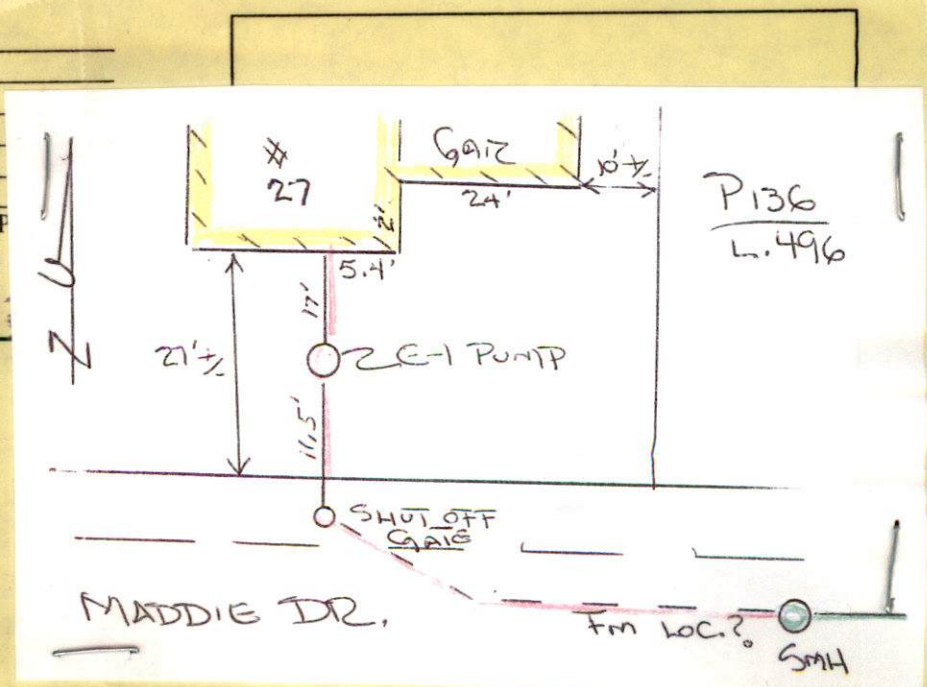 #
27
GAR
24'
10' +/-
P136
L. 496
2'
5.4'
17'
E-1 PUMP
27' +/-
11.5'
SHUT OFF
GATE
MADDIE DR.
FM LOC.?
SMH
N
P